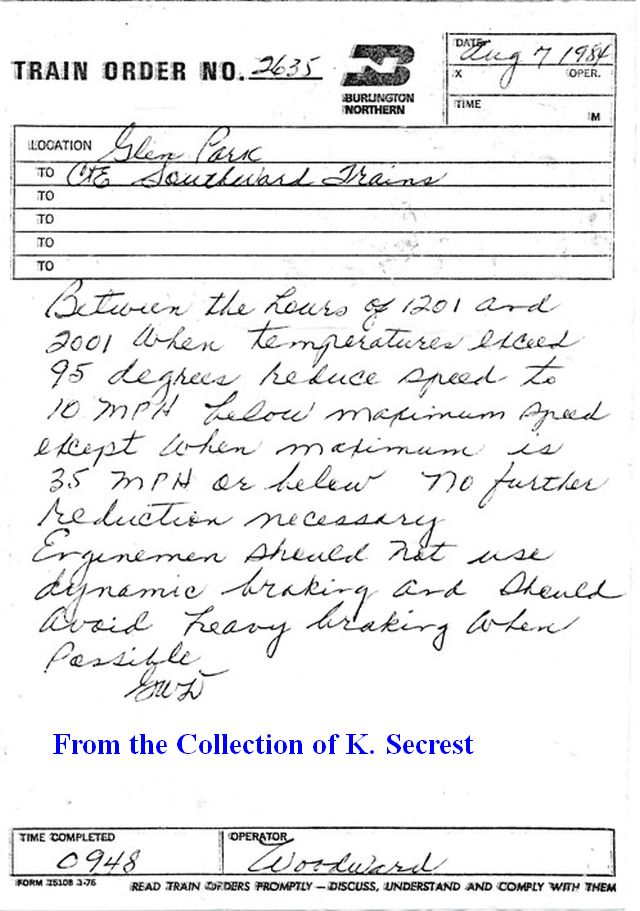 TRAIN ORDER NO. 2635
BURLINGTON
NORTHERN
DATE Aug 7 1984
X OPER.
TIME M
LOCATION Glen Park
TO C&E Southward Trains
TO
TO
TO
TO
Between the hours of 1201 and
2001 When temperatures exceed
95 degrees reduce speed to
10 MPH below maximum speed
except when maximum is
35 MPH or below No further
reduction necessary
Enginemen should not use
dynamic braking and should
avoid heavy braking when
Possible
From the Collection of K. Secrest
TIME COMPLETED
0948
OPERATOR
Woodward
FORM 15108 3-76
READ TRAIN ORDERS PROMPTLY — DISCUSS, UNDERSTAND AND COMPLY WITH THEM